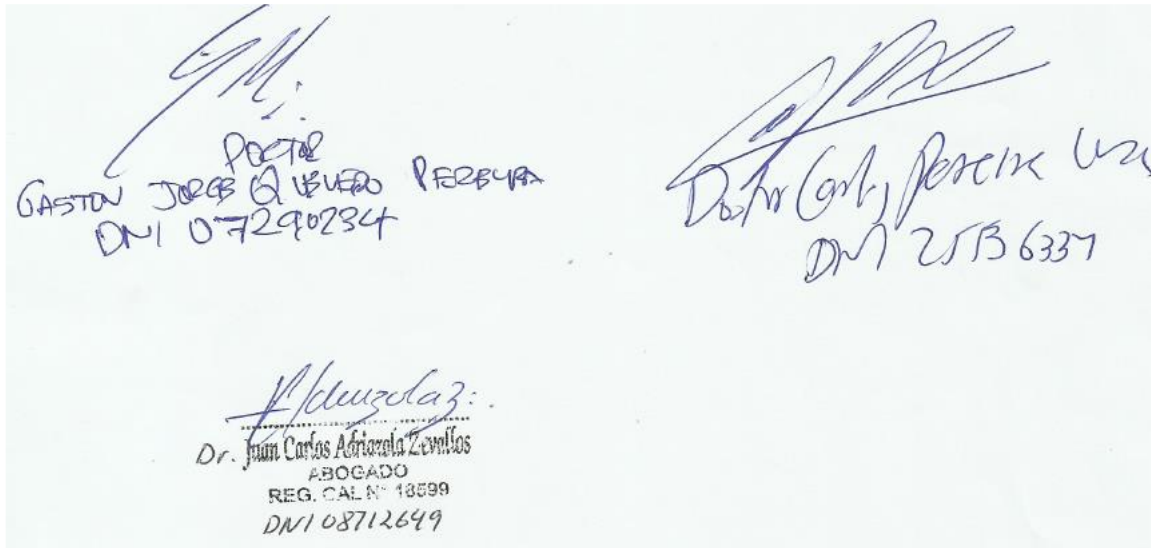 DOCTOR
GASTON JORGE QUEVEDO PEREYRA
DNI 07290234
Doctor Carlos Pereira
DNI
Dr. Juan Carlos Adriazola Zevallos
ABOGADO
REG. CAL N° 18599
DNI 08712649